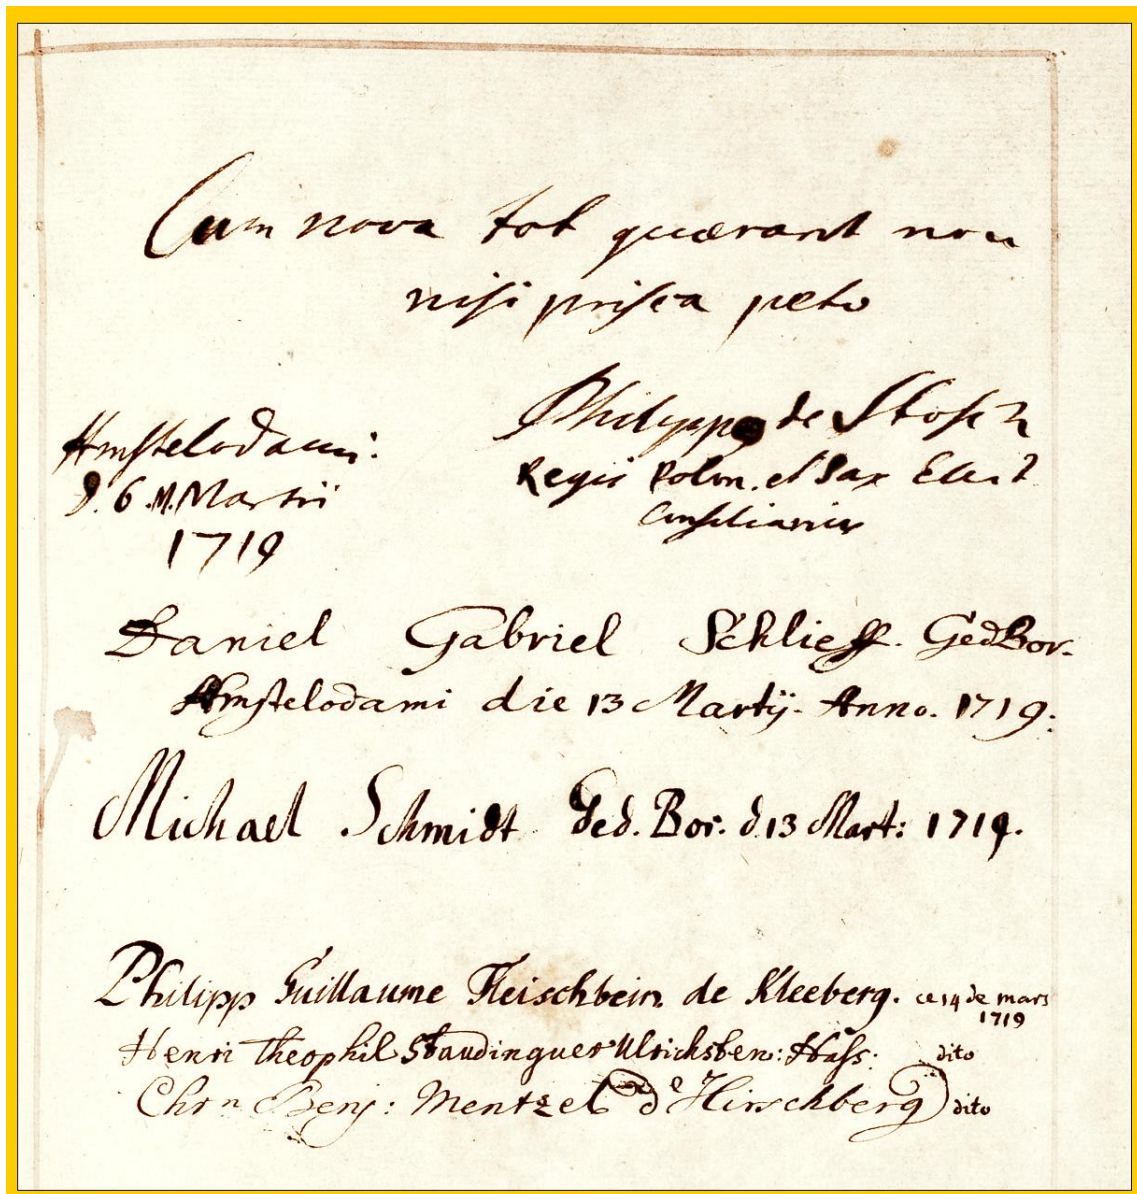 Cum nova tot quærant non
nisi prisca peto
Amstelodami:
d. 6. M. Martii
1719
Philipp de Stosch
Regis Polon. et Sax Elect
Consiliarius
Daniel Gabriel Schlieff. GedBor.
Amstelodami die 13 Martÿ. Anno. 1719.
Michael Schmidt Ged. Bor. d. 13 Mart: 1719.
Philipp Guillaume Fleischbein de Kleeberg. ce 14 de mars
1719
Henri Theophil Staudinguer Ulrichsten: Hass: dito
Chrn Benj: Mentzel de Hirschberg dito